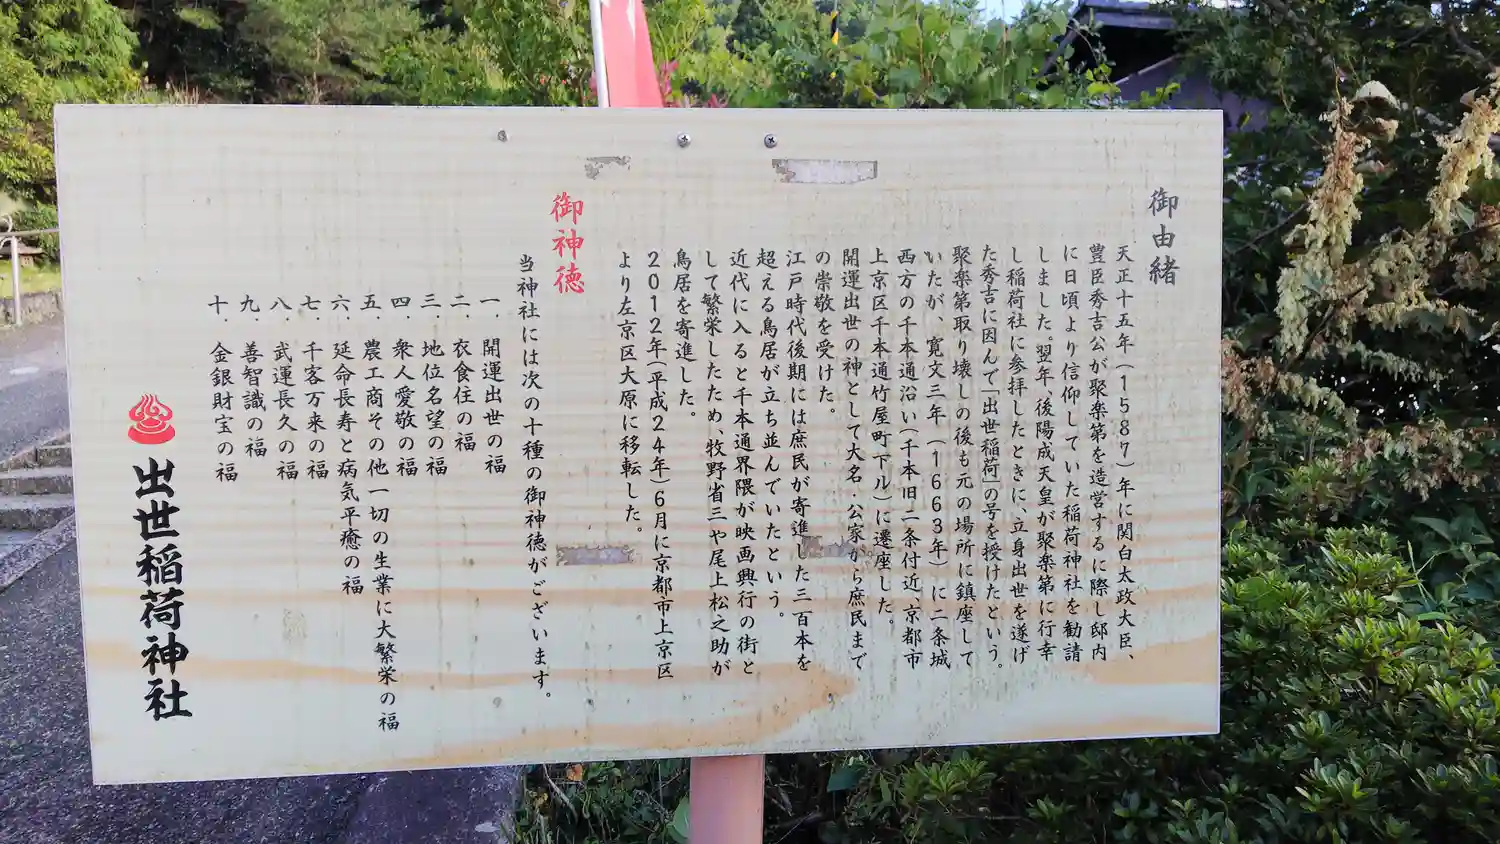 御由緒
天正十五年(1587)年に関白太政大臣、
豊臣秀吉公が聚楽第を造営するに際し邸内
に日頃より信仰していた稲荷神社を勧請
しました。翌年後陽成天皇が聚楽第に行幸
し稲荷社に参拝したときに、立身出世を遂げ
た秀吉に因んで「出世稲荷」の号を授けたという。
聚楽第取り壊しの後も元の場所に鎮座して
いたが、寛文三年(1663年)に二条城
西方の千本通沿い(千本旧二条付近、京都市
上京区千本通竹屋町下ル)に遷座した。
開運出世の神として大名・公家から庶民まで
の崇敬を受けた。
江戸時代後期には庶民が寄進した三百本を
超える鳥居が立ち並んでいたという。
近代に入ると千本通界隈が映画興行の街と
して繁栄したため、牧野省三や尾上松之助が
鳥居を寄進した。
2012年(平成24年)6月に京都市上京区
より左京区大原に移転した。
御神徳
当神社には次の十種の御神徳がございます。
一、開運出世の福
二、衣食住の福
三、地位名望の福
四、衆人愛敬の福
五、農工商その他一切の生業に大繁栄の福
六、延命長寿と病気平癒の福
七、千客万来の福
八、武運長久の福
九、善智識の福
十、金銀財宝の福
出世稲荷神社